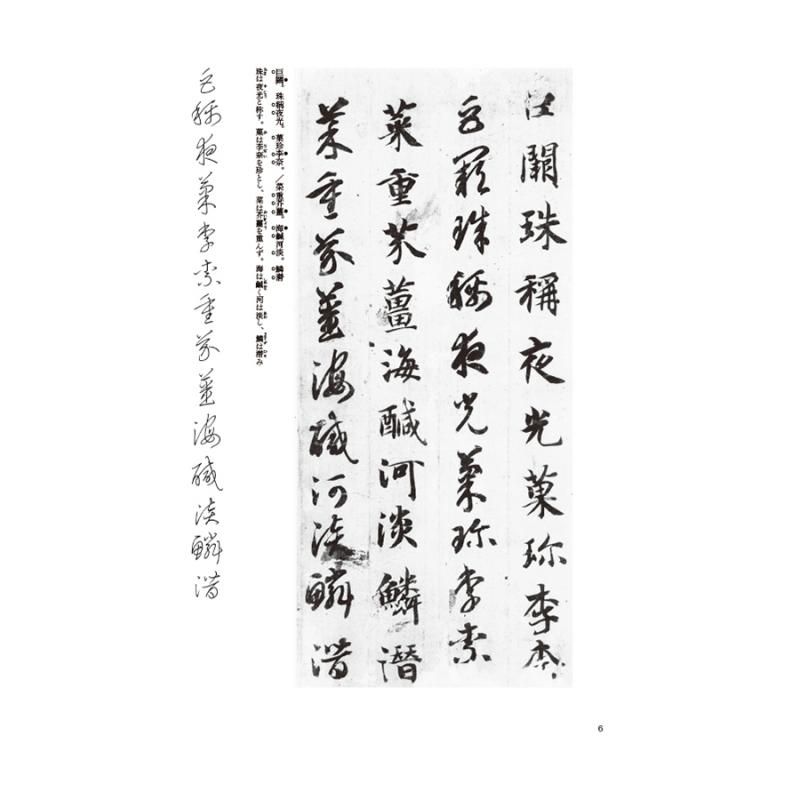 巨闕珠稱夜光菓珍李柰
巨闕珠稱夜光菓珍李柰
菜重芥薑海醎河淡鱗潛
菜重芥薑海醎河淡鱗潛
巨闕。珠稱夜光。菓珍李奈。／菜重芥薑。海鹹河淡。鱗潛
珠は夜光と称す。菓は李奈を珍とし、菜は芥薑を重んず。海は鹹く河は淡し、鱗は潜み
巨稱夜菓李柰重芥薑海醎淡鱗潛
6